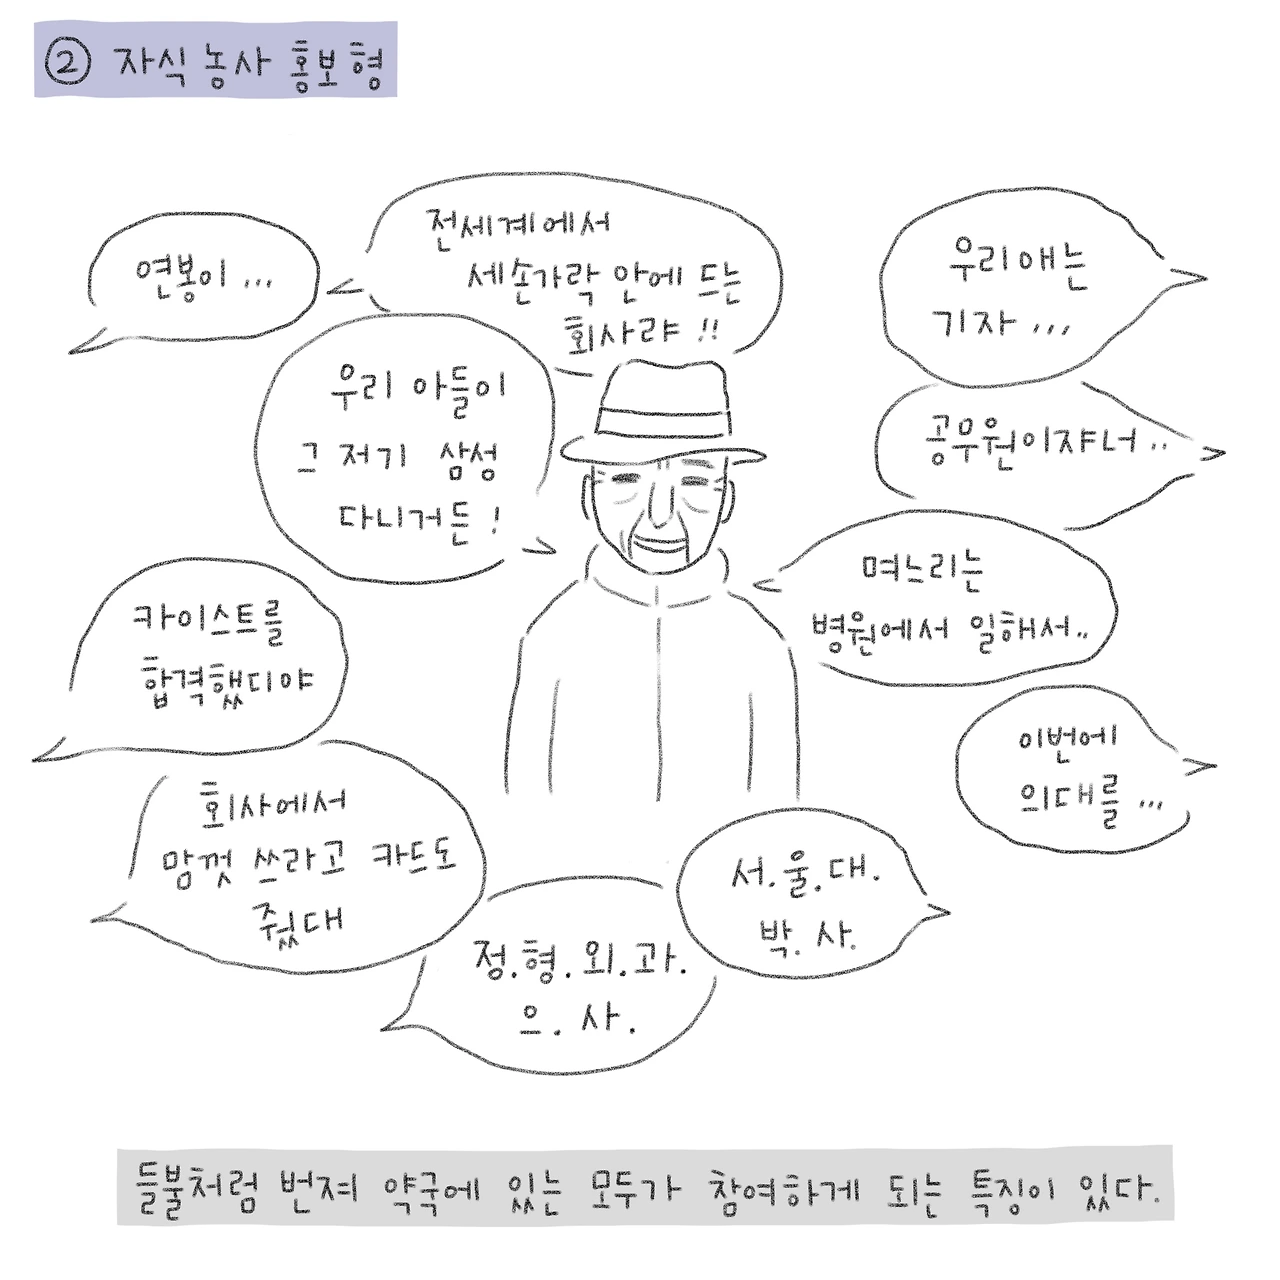 ② 자식 농사 홍보형
연봉이 ...
전세계에서
세손가락 안에 드는
회사랴 !!
우리 애는
기자 ...
우리 아들이
그 저기 삼성
다니거든 !
공무원이쟈너 ..
며느리는
병원에서 일해서..
카이스트를
합격했디야
이번에
의대를 ...
회사에서
맘껏 쓰라고 카드도
줬대
서.울.대.
박.사.
정.형.외.과.
으.사.
들불처럼 번져 약국에 있는 모두가 참여하게 되는 특징이 있다.